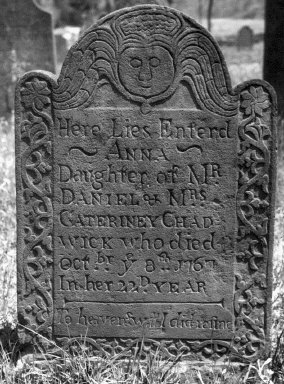 Here Lies Enterd
~ ANNA ~
Daughter of MR
DANIEL & MRS
CATERINEY CHAD-
WICK who died
Octbr ye 8th 1767
In her 22D YEAR
To heaven